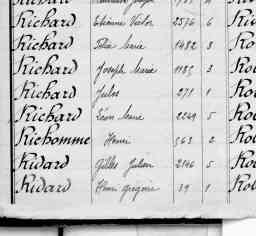 Richard
Richard Etienne Victor 2576 6
Richard Marie 1482 3
Richard Joseph Marie 1185 3
Richard Jules 271 1
Richard Léon Marie 2249 5
Richomme Henri 563 2
Ridard Gilles Julien 2146 5
Ridard Henri Grégoire 39 1